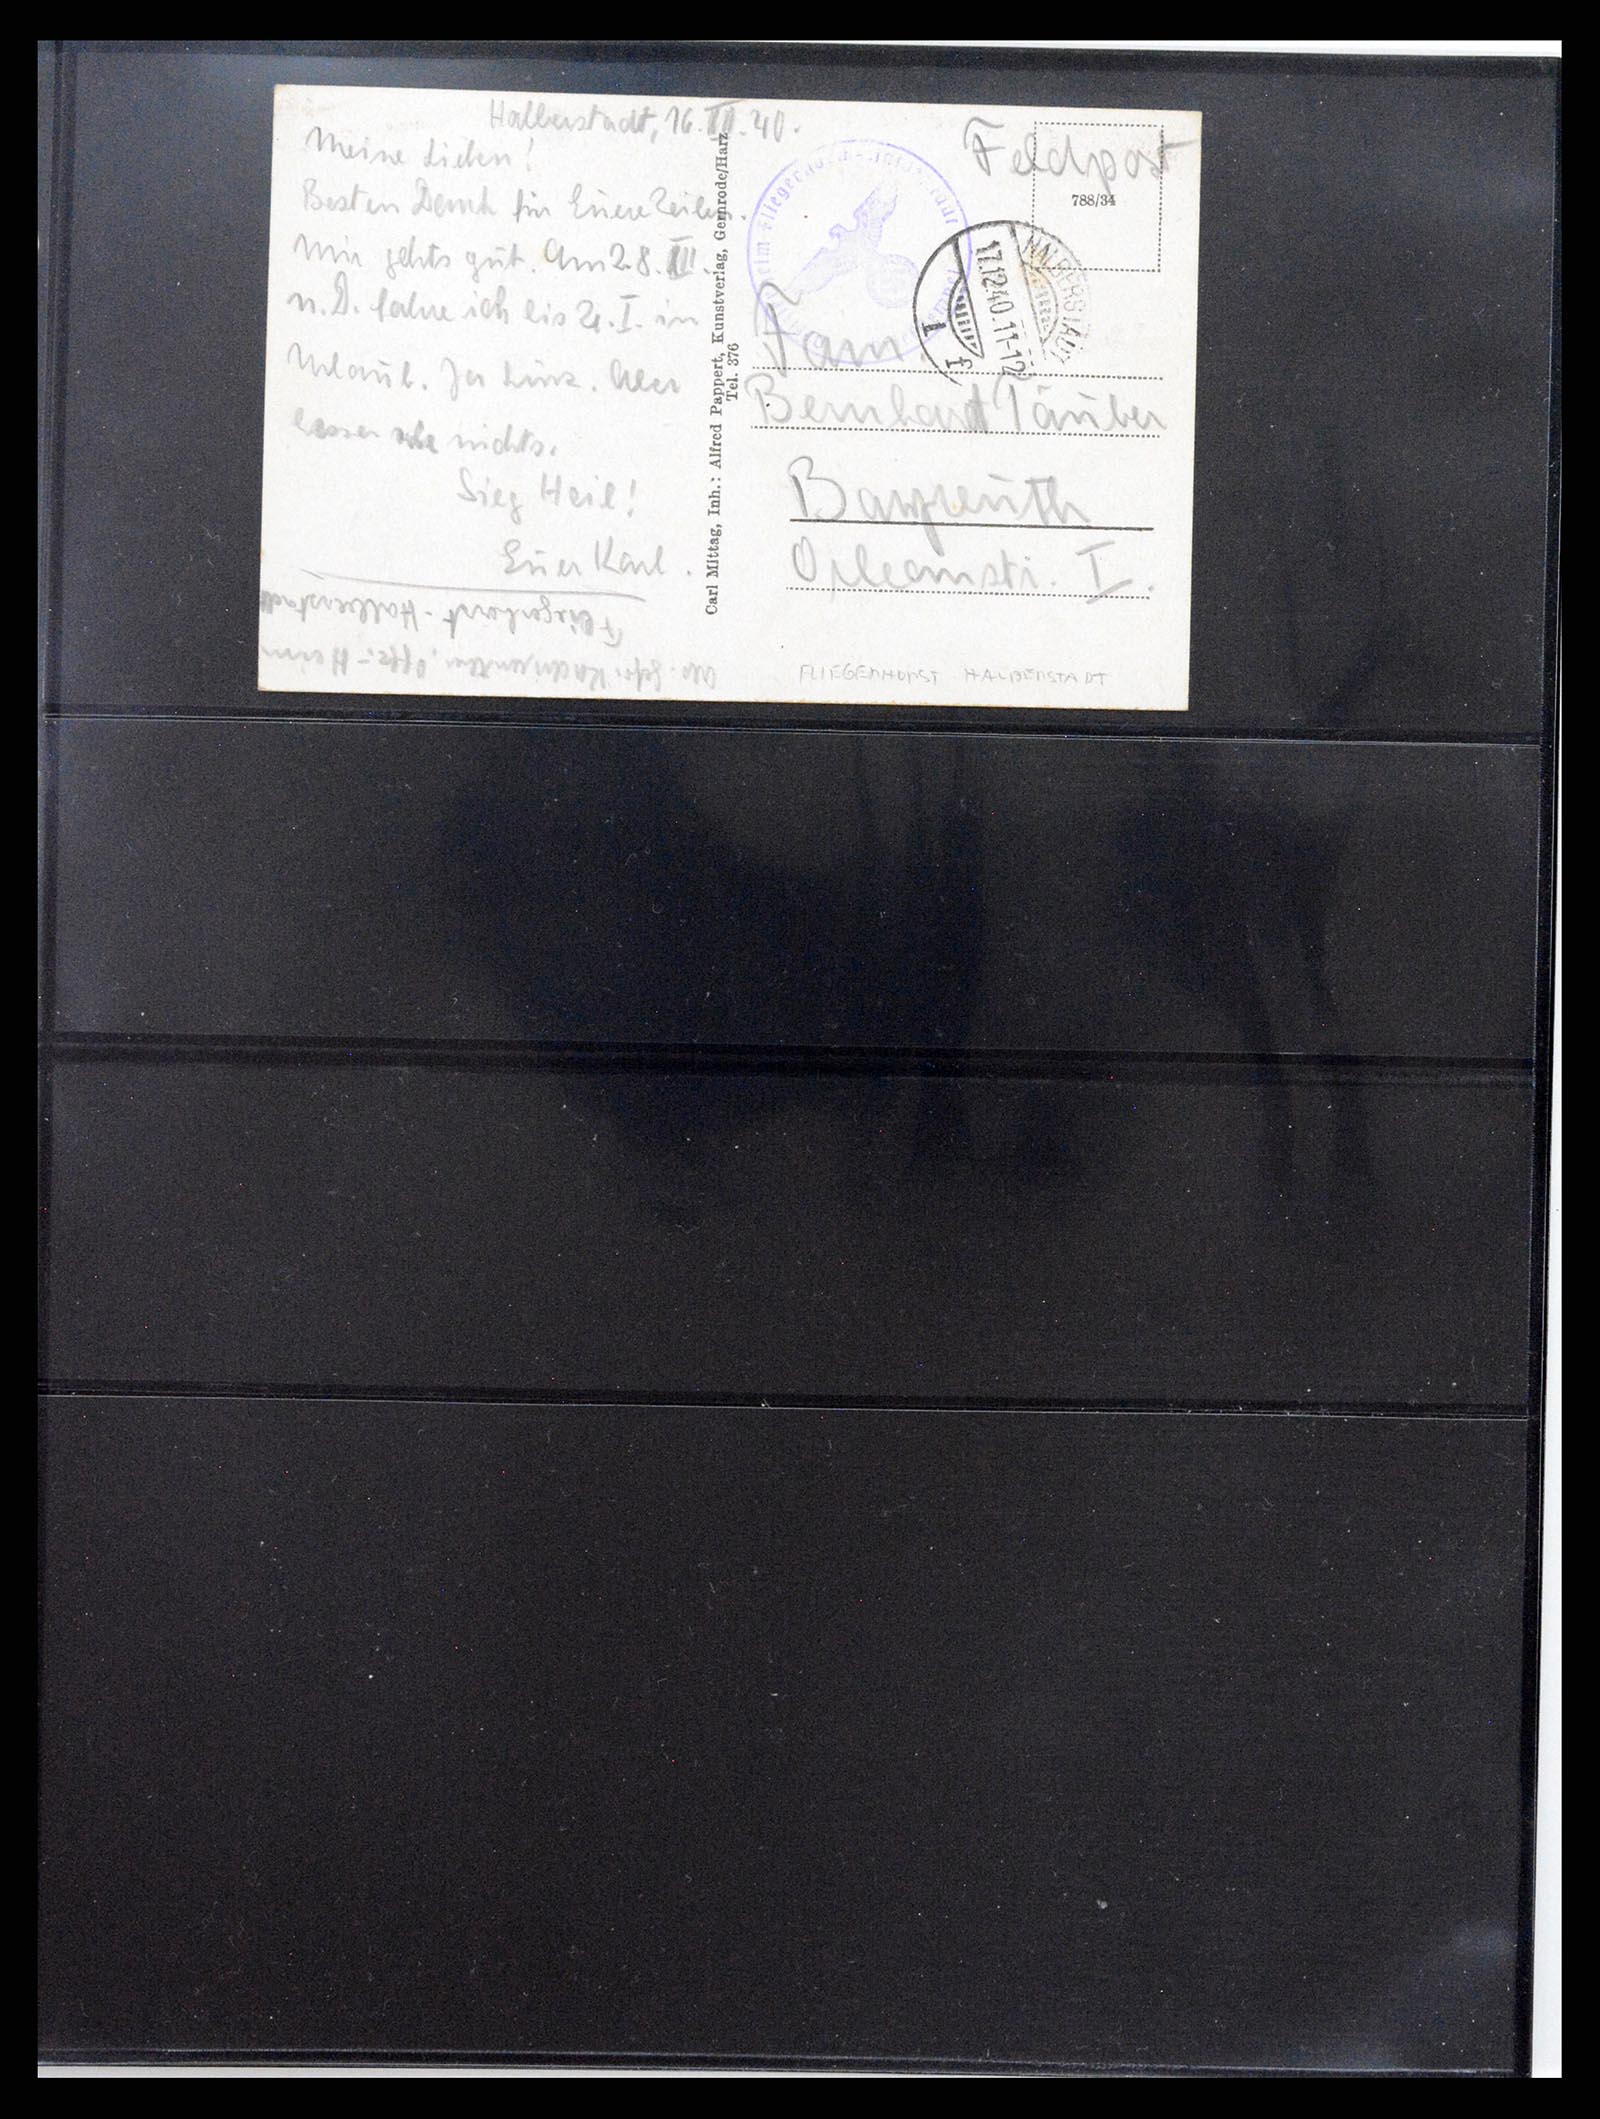 Halberstadt, 16. III. 40.
Meine Lieben!
Besten Dank für Euere Zeilen.
Mir gehts gut. Am 28. III.
n. D. fahre ich bis 21. I. in
Urlaub. Aber
lassen nichts.
Sieg Heil!
Euer Karl.
Fliegerhorst-Halberstadt
Carl Mittag, Inh.: Alfred Pappert, Kunstverlag, Gernrode/Harz
Tel. 376
Feldpost
788/34
HALBERSTADT
17.12.40.11-12
1 f
Fam.
Bernhard Täuber
Bayreuth
Orleanstr. I.
FLIEGERHORST HALBERSTADT